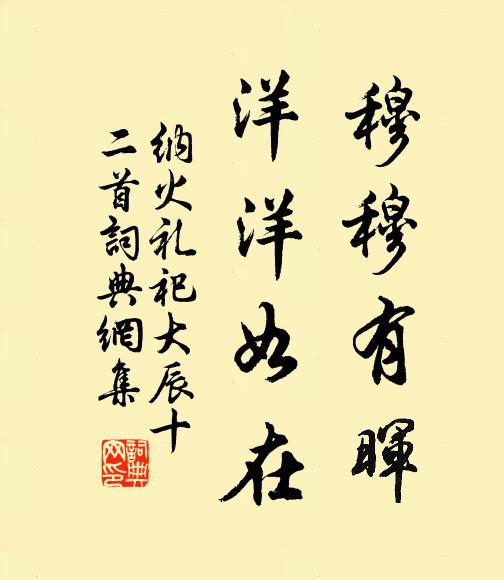 穆穆有暉
洋洋如在
纳火礼祀大辰十
二首詞典網集
詞典
网印